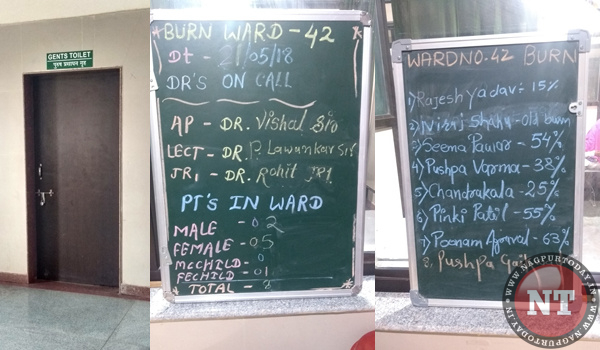 GENTS TOILET
पुरुष प्रसाधन गृह
BURN WARD - 42
Dt - 21/05/18
DR'S ON CALL
AP - DR. Vishal Sir
LECT - DR. P. Lawankar Sir
JR1 - DR. Rohit JR1
PT'S IN WARD
MALE - 02
FEMALE - 05
MCCHILD - 0
FECHILD - 01
TOTAL - 8
WARD NO. 42 BURN
1) Rajesh Yadav: 15%
2) Niraj Shahu - old burn
3) Seema Pawar - 54%
4) Pushpa Varma - 38%
5) Chandrakala - 25%
6) Pinki Patil - 55%
7) Poonam Agrawal - 63%
8. Pushpa
NT
WWW.NAGPURTODAY.IN
WWW.NAGPURTODAY.IN